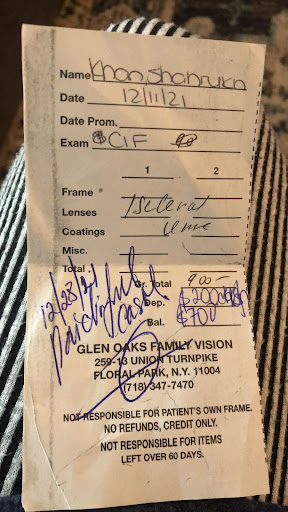 Name Khan, Shahrukh
Date 12/11/21
Date Prom.
Exam $ CIF
1 2
Frame
Lenses
Coatings
Misc.
Total
Gr. Total 900 -
Dep. $200
Bal. $700
12/28/21
Paid in full
cash
GLEN OAKS FAMILY VISION
259-13 UNION TURNPIKE
FLORAL PARK, N.Y. 11004
(718) 347-7470
NOT RESPONSIBLE FOR PATIENT'S OWN FRAME.
NO REFUNDS, CREDIT ONLY.
NOT RESPONSIBLE FOR ITEMS
LEFT OVER 60 DAYS.